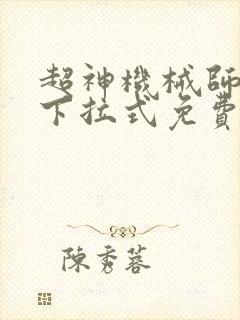 超神機械師
下拉式免費
陳秀蓉